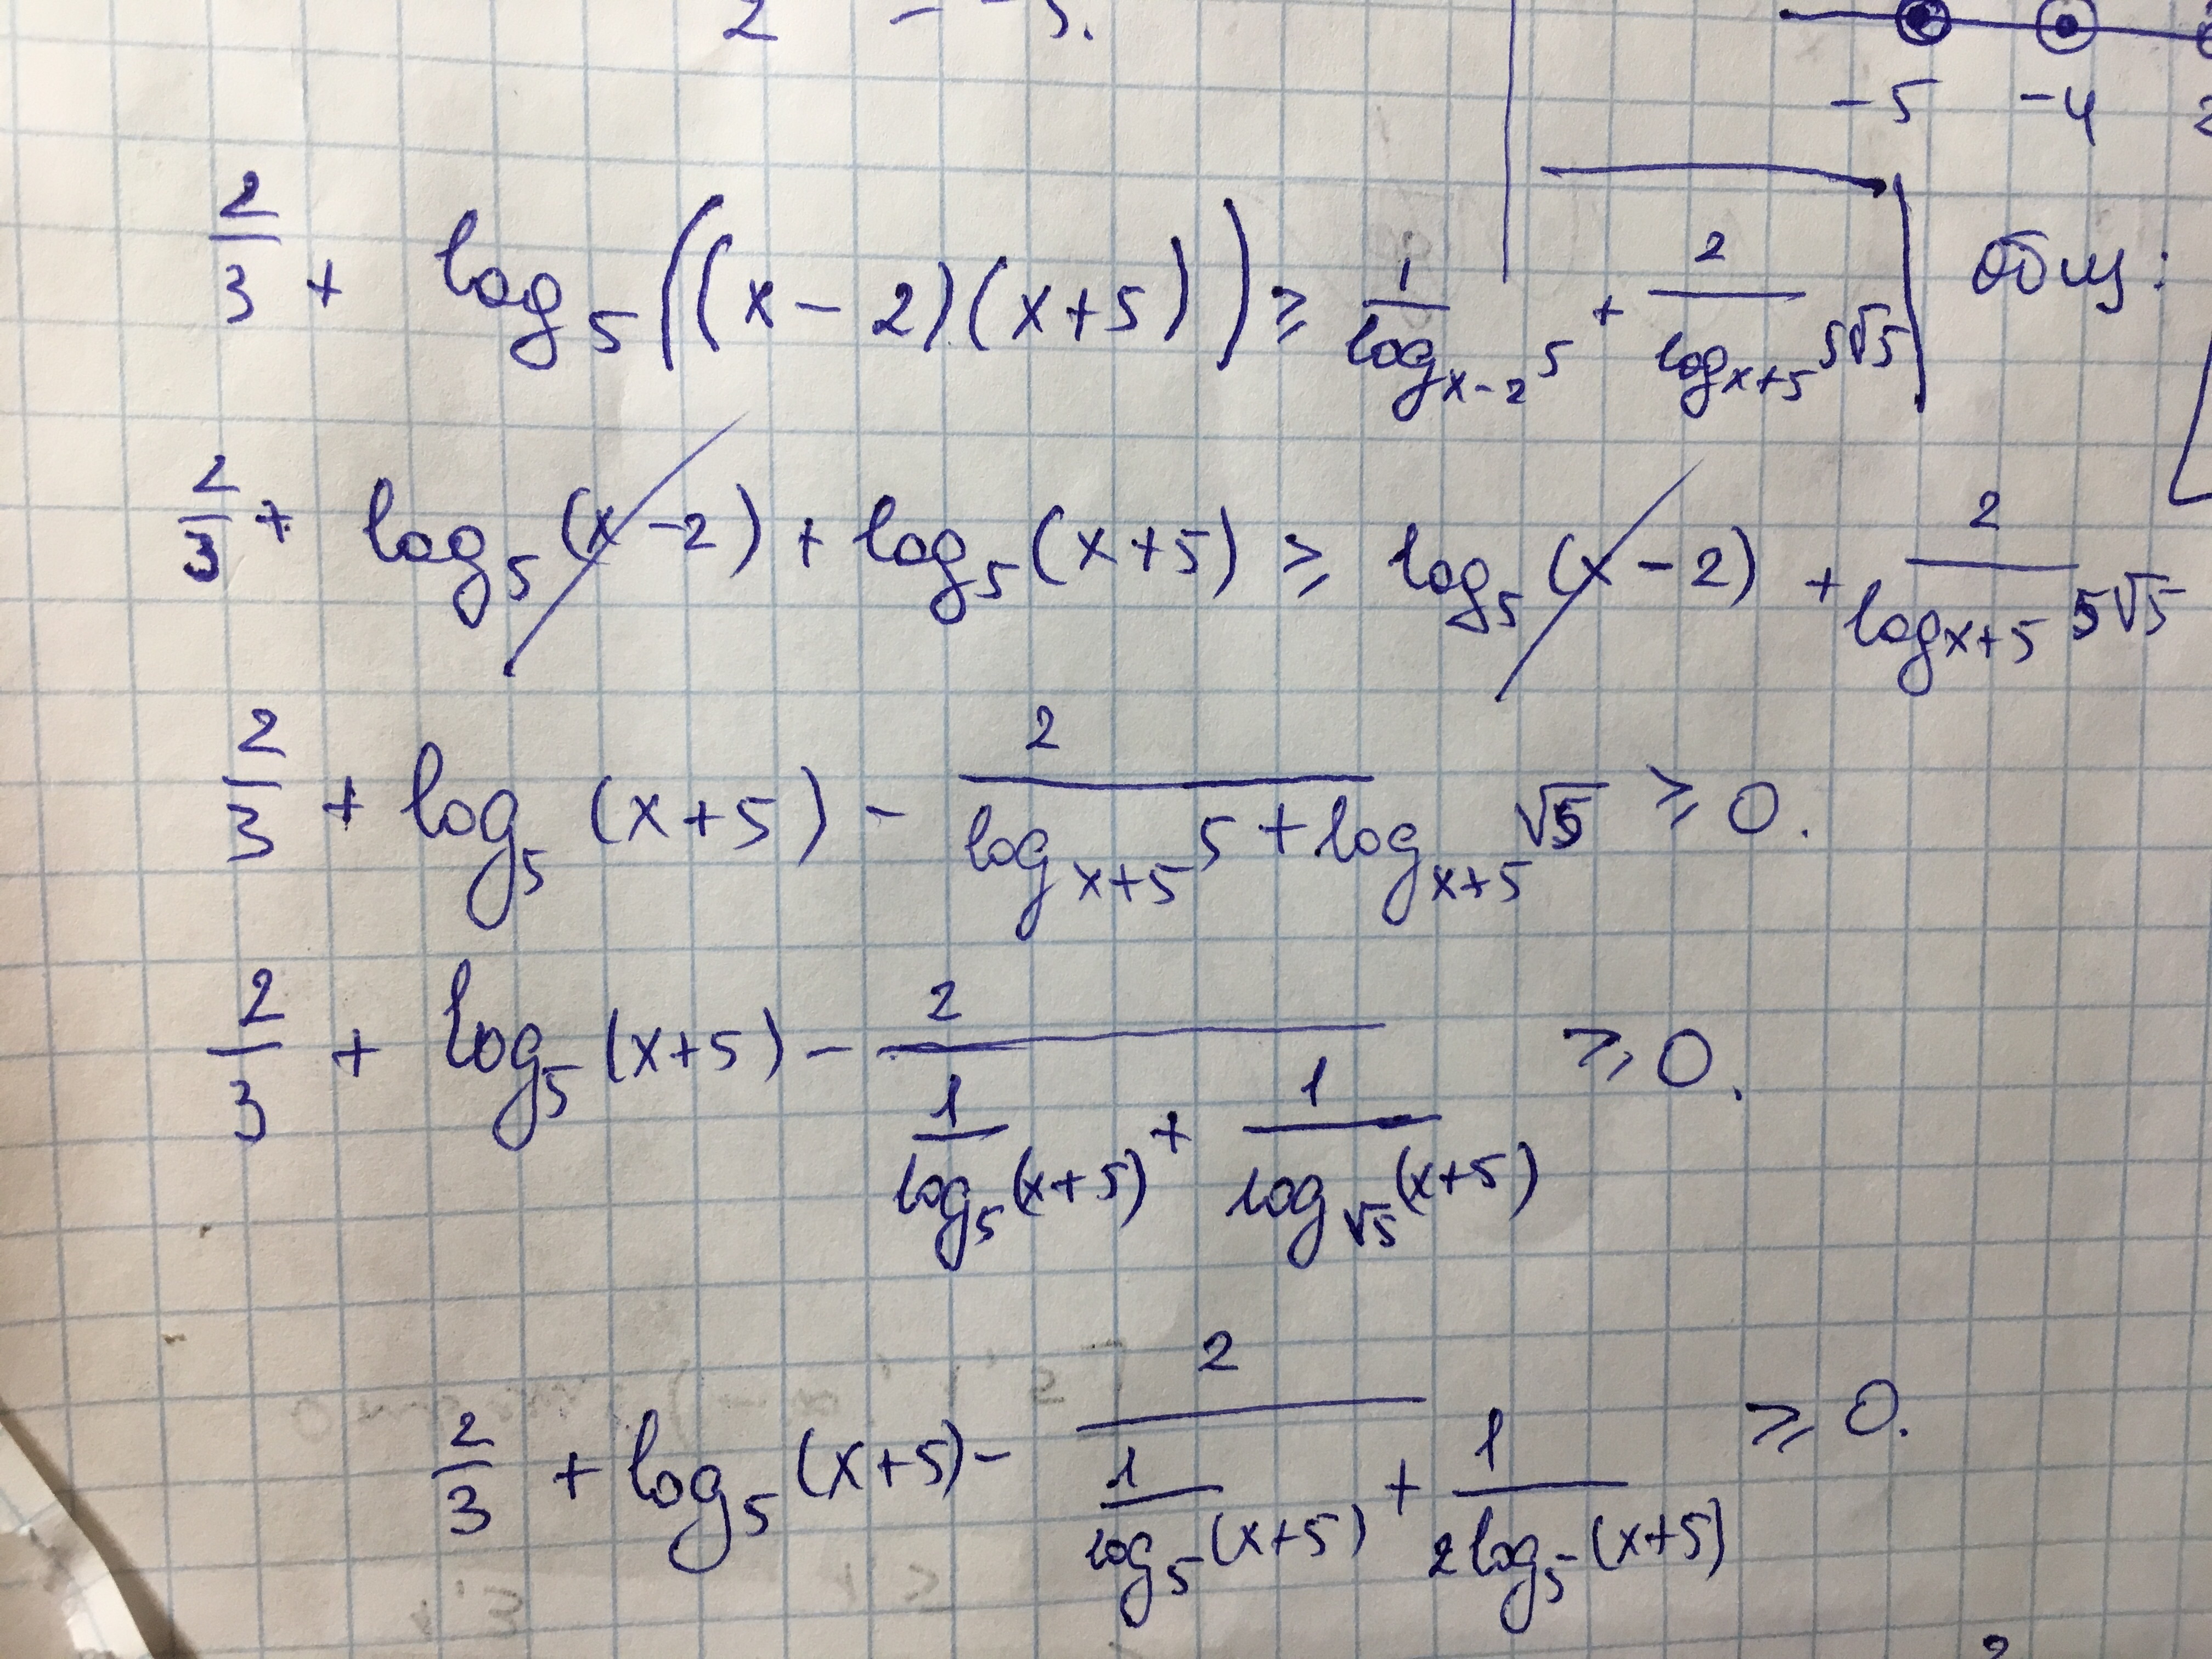 2 = -5.
-5 -4
2/3 + log₅((x-2)(x+5)) ≥ 1/(logₓ₋₂ 5) + 2/(logₓ₊₅ 5√5)
2/3 + log₅(x-2) + log₅(x+5) ≥ log₅(x-2) + 2/(logₓ₊₅ 5√5)
2/3 + log₅(x+5) - 2/(logₓ₊₅ 5 + logₓ₊₅ √5) ≥ 0.
2/3 + log₅(x+5) - 2/(1/(log₅(x+5)) + 1/(log_√5(x+5))) ≥ 0.
2/3 + log₅(x+5) - 2/(1/(log₅(x+5)) + 1/(2log₅(x+5))) ≥ 0.
2